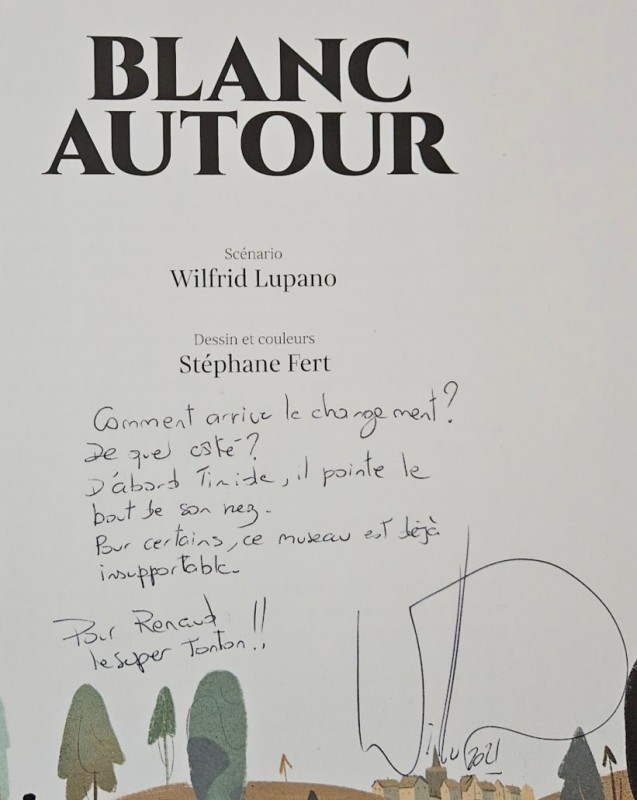 BLANC
AUTOUR
Scénario
Wilfrid Lupano
Dessin et couleurs
Stéphane Fert
Comment arrive le changement?
De quel côté?
D'abord Timide, il pointe le
bout de son nez.
Pour certains, ce museau est déjà
insupportable.
Pour Renaud
le super Tonton!!
2021